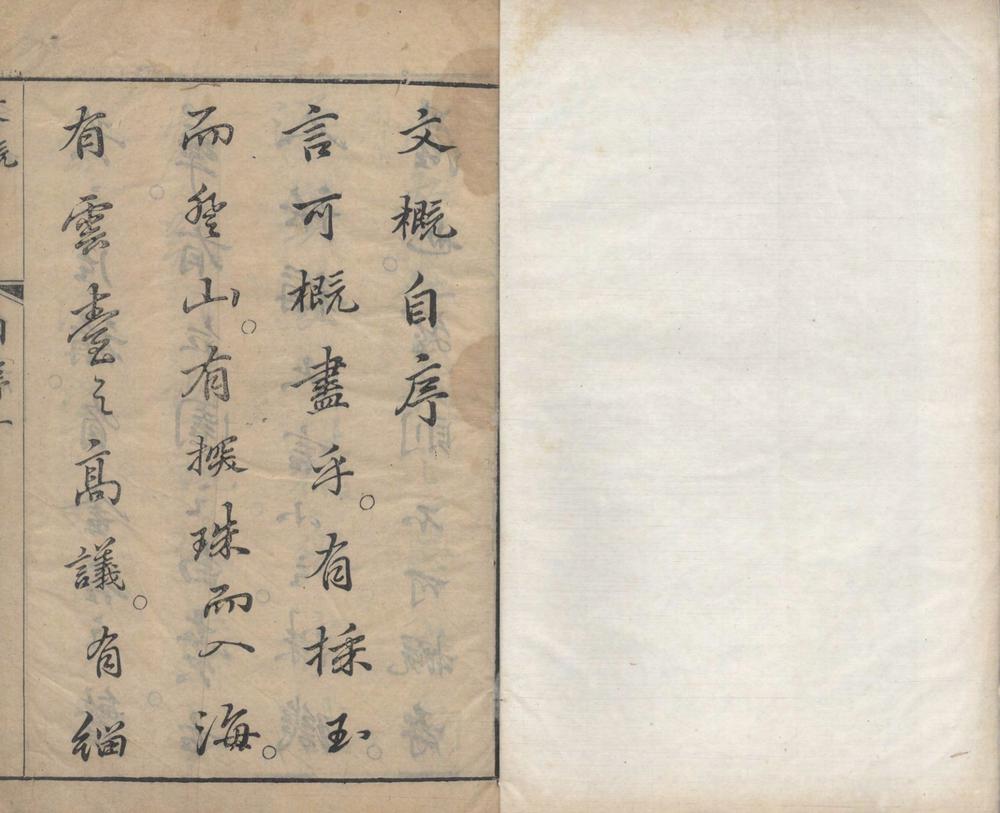 文概自序
言可概盡乎。有採玉。
而登山。有探珠而入海。
有雲臺之高議。有緇